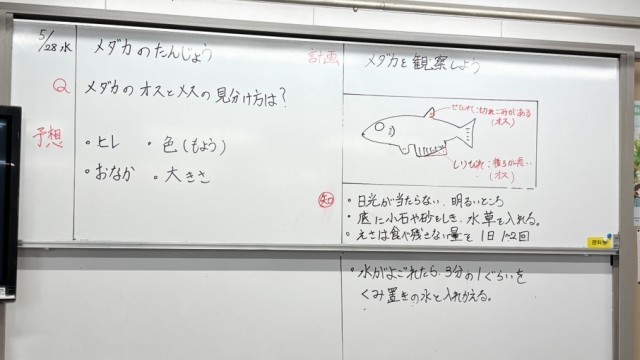 5/28 水
メダカのたんじょう
Q メダカのオスとメスの見分け方は？
予想
・ヒレ ・色(もよう)
・おなか ・大きさ
計画 メダカを観察しよう
せびれ:切れこみがある
(オス)
しりびれ:後ろが長い
(オス)
知 ・日光が当たらない、明るいところ
・底に小石や砂をしき、水草を入れる。
・えさは食べ残さない量を1日1~2回
・水がよごれたら、3分の1ぐらいを
くみ置きの水と入れかえる。